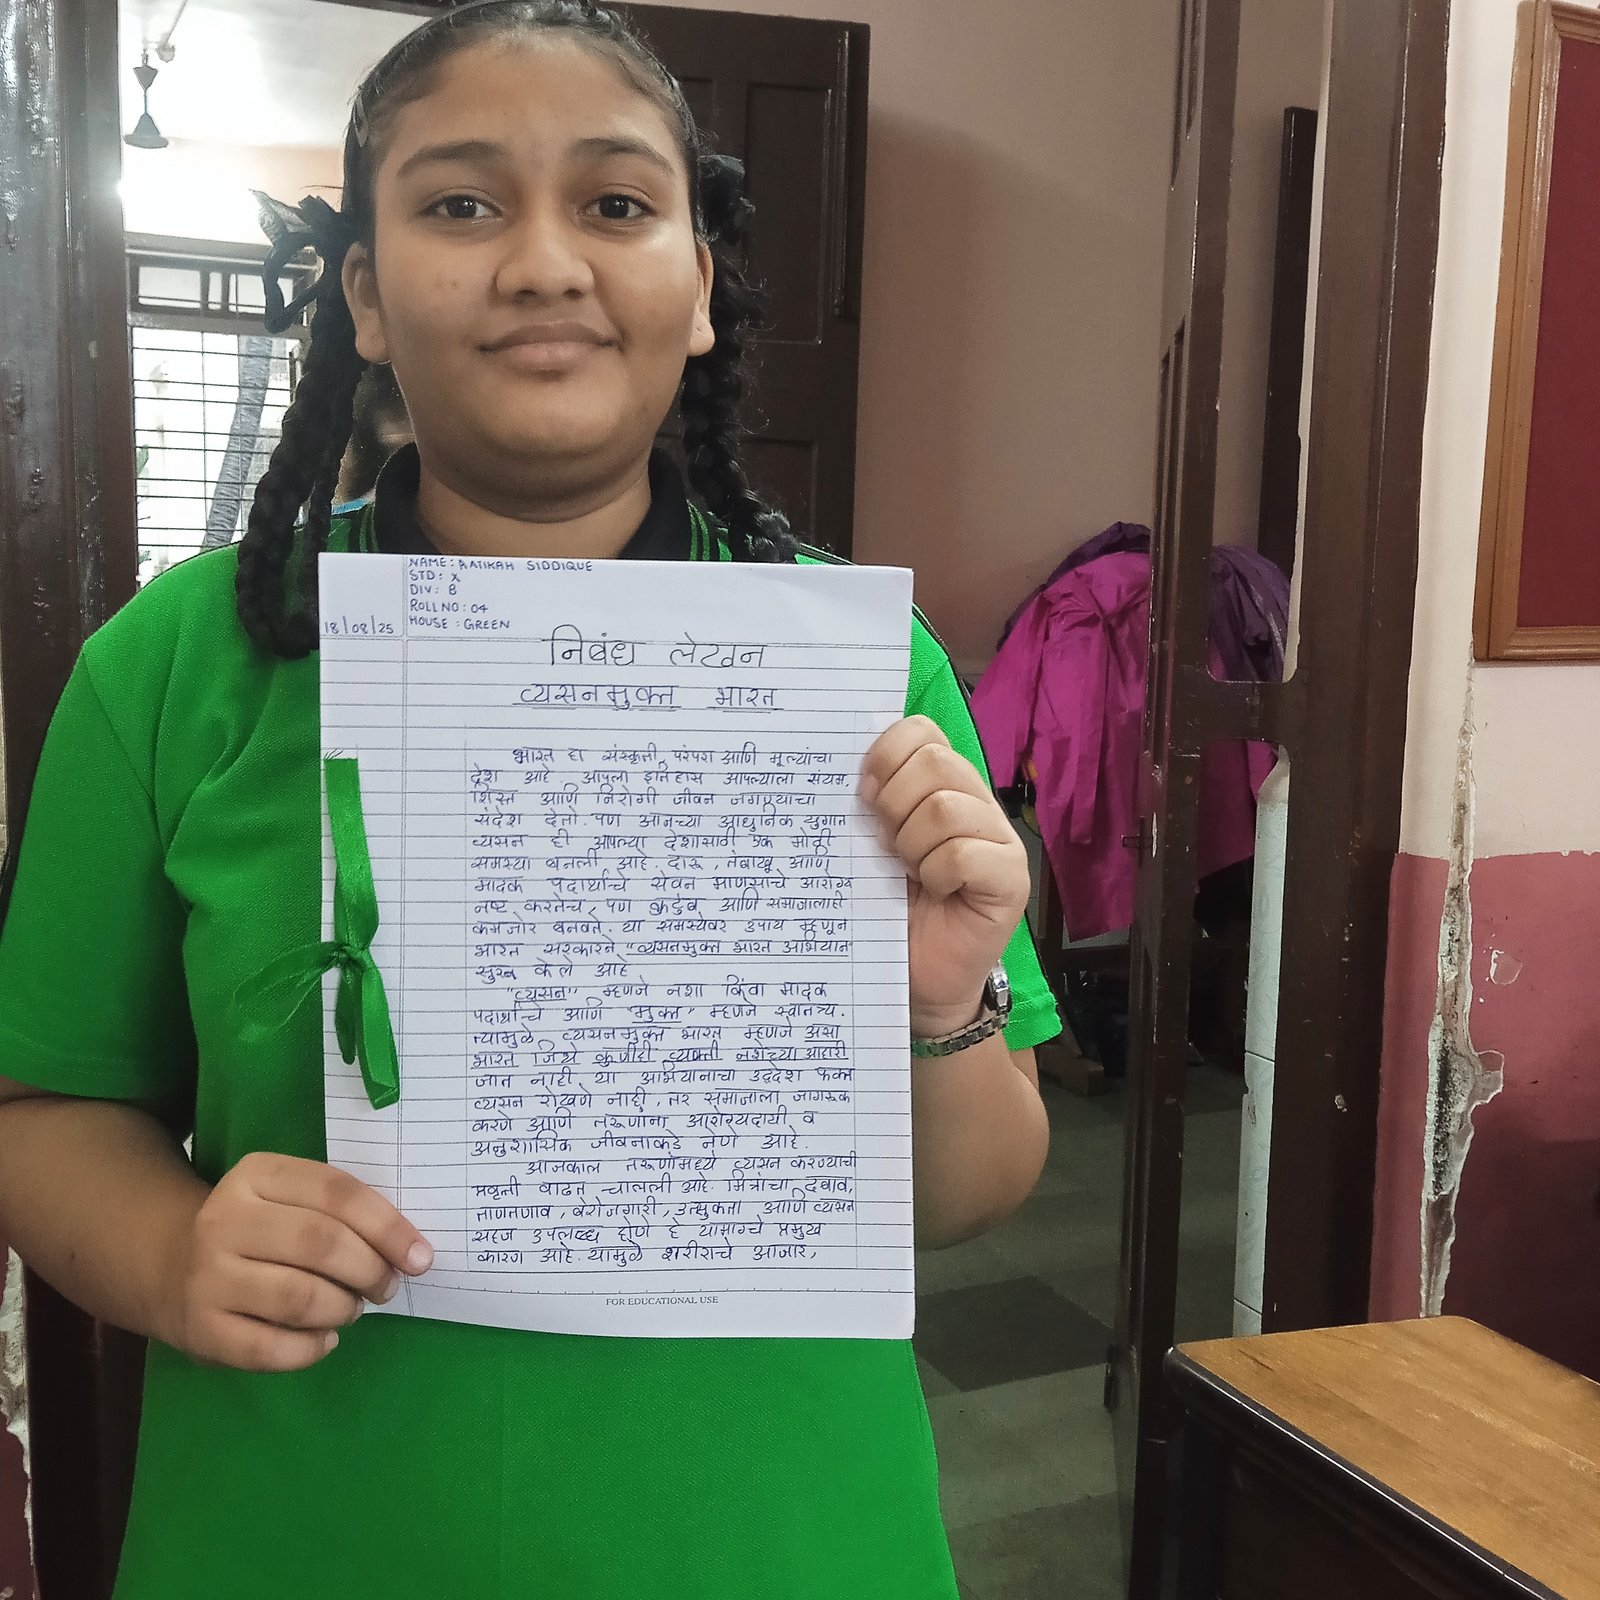 NAME: AATIKAH SIDDIQUE
STD: X
DIV: B
ROLL NO: 04
HOUSE: GREEN
18/08/25
निबंध लेखन
व्यसनमुक्त भारत
भारत हा संस्कृती, परंपरा आणि मूल्यांचा
देश आहे. आपला इतिहास आपल्याला संयम,
शिस्त आणि निरोगी जीवन जगण्याचा
संदेश देतो. पण आजच्या आधुनिक युगात
व्यसन ही आपल्या देशासाठी एक मोठी
समस्या बनली आहे. दारू, तंबाखू आणि
मादक पदार्थांचे सेवन माणसाचे आरोग्य
नष्ट करतेच, पण कुटुंब आणि समाजालाही
कमजोर बनवते. या समस्येवर उपाय म्हणून
भारत सरकारने "व्यसनमुक्त भारत अभियान"
सुरू केले आहे.
"व्यसन" म्हणजे नशा किंवा मादक
पदार्थाचे आणि "मुक्त" म्हणजे स्वातंत्र्य.
त्यामुळे व्यसनमुक्त भारत म्हणजे असा
भारत जिथे कुणीही व्यक्ती नशेच्या आहारी
जात नाही. या अभियानाचा उद्देश फक्त
व्यसन रोखणे नाही, तर समाजाला जागरूक
करणे आणि तरूणांना आरोग्यदायी व
अनुशासिक जीवनाकडे नेणे आहे.
आजकाल तरूणांमध्ये व्यसन करण्याची
प्रवृत्ती वाढत चालली आहे. मित्रांचा दबाव,
ताणतणाव, बेरोजगारी, उत्सुकता आणि व्यसन
सहज उपलब्ध होणे हे यामागचे प्रमुख
कारण आहे. यामुळे शरीराचे आजार,
FOR EDUCATIONAL USE